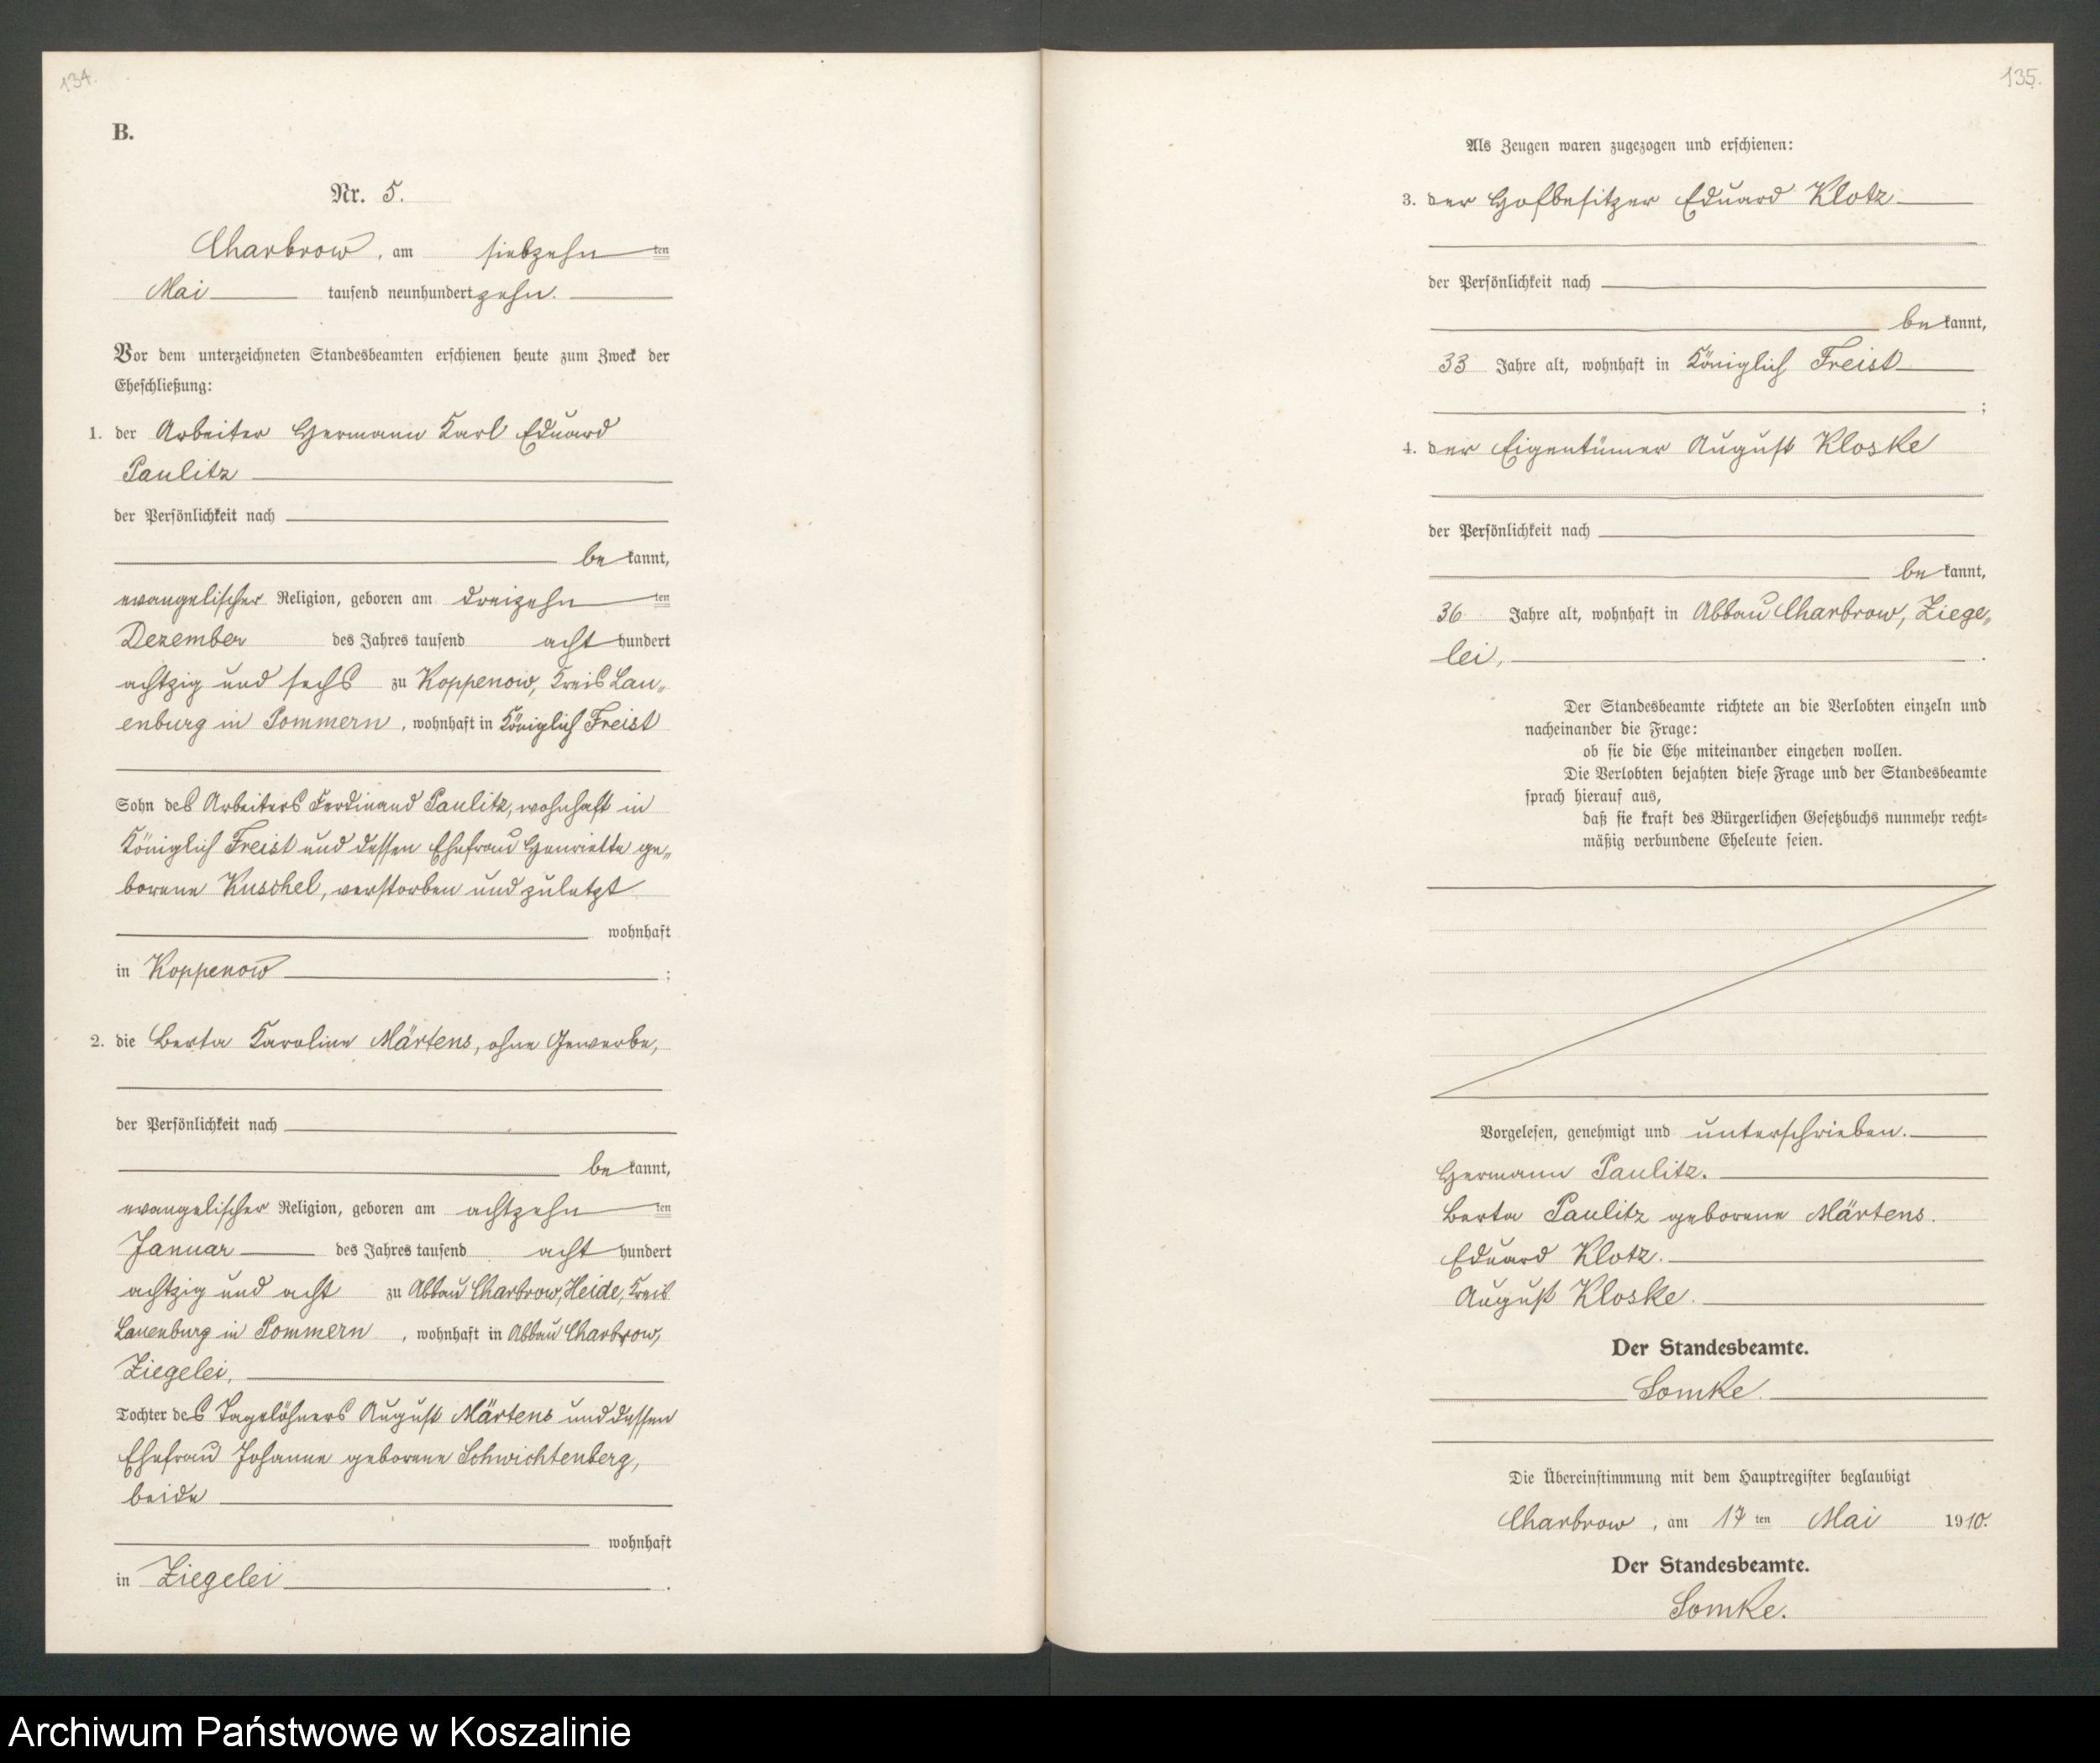 134.
B.
Nr. 5.
Charbrow, am siebzehn ten
Mai tausend neunhundert zehn.
Vor dem unterzeichneten Standesbeamten erschienen heute zum Zweck der
Eheschließung:
1. der Arbeiter Hermann Karl Eduard
Paulitz
der Persönlichkeit nach
be kannt,
evangelischer Religion, geboren am dreizehn ten
Dezember des Jahres tausend acht hundert
achtzig und sechs zu Koppenow, Kreis Lau„
enburg in Pommern, wohnhaft in Königlich Freist
Sohn des Arbeiters Ferdinand Paulitz, wohnhaft in
Königlich Freist und dessen Ehefrau Henriette ge„
borene Kuschel, verstorben und zuletzt
wohnhaft
in Koppenow ;
2. die Berta Karoline Märtens, ohne Gewerbe,
der Persönlichkeit nach
be kannt,
evangelischer Religion, geboren am achtzehn ten
Januar des Jahres tausend acht hundert
achtzig und acht zu Abbau Charbrow, Heide, Kreis
Lauenburg in Pommern, wohnhaft in Abbau Charbrow,
Ziegelei,
Tochter des Tagelöhners August Märtens und dessen
Ehefrau Johanne geborene Schwichtenberg,
beide
wohnhaft
in Ziegelei .
135.
Als Zeugen waren zugezogen und erschienen:
3. der Hofbesitzer Eduard Klotz
der Persönlichkeit nach
be kannt,
33 Jahre alt, wohnhaft in Königlich Freist
;
4. der Eigentümer August Kloske
der Persönlichkeit nach
be kannt,
36 Jahre alt, wohnhaft in Abbau Charbrow, Ziege„
lei, .
Der Standesbeamte richtete an die Verlobten einzeln und
nacheinander die Frage:
ob sie die Ehe miteinander eingehen wollen.
Die Verlobten bejahten diese Frage und der Standesbeamte
sprach hierauf aus,
daß sie kraft des Bürgerlichen Gesetzbuchs nunmehr recht=
mäßig verbundene Eheleute seien.
Vorgelesen, genehmigt und unterschrieben.
Hermann Paulitz.
Berta Paulitz geborene Märtens.
Eduard Klotz.
August Kloske.
Der Standesbeamte.
Somke.
Die Übereinstimmung mit dem Hauptregister beglaubigt
Charbrow, am 17 ten Mai 1910.
Der Standesbeamte.
Somke.
Archiwum Państwowe w Koszalinie